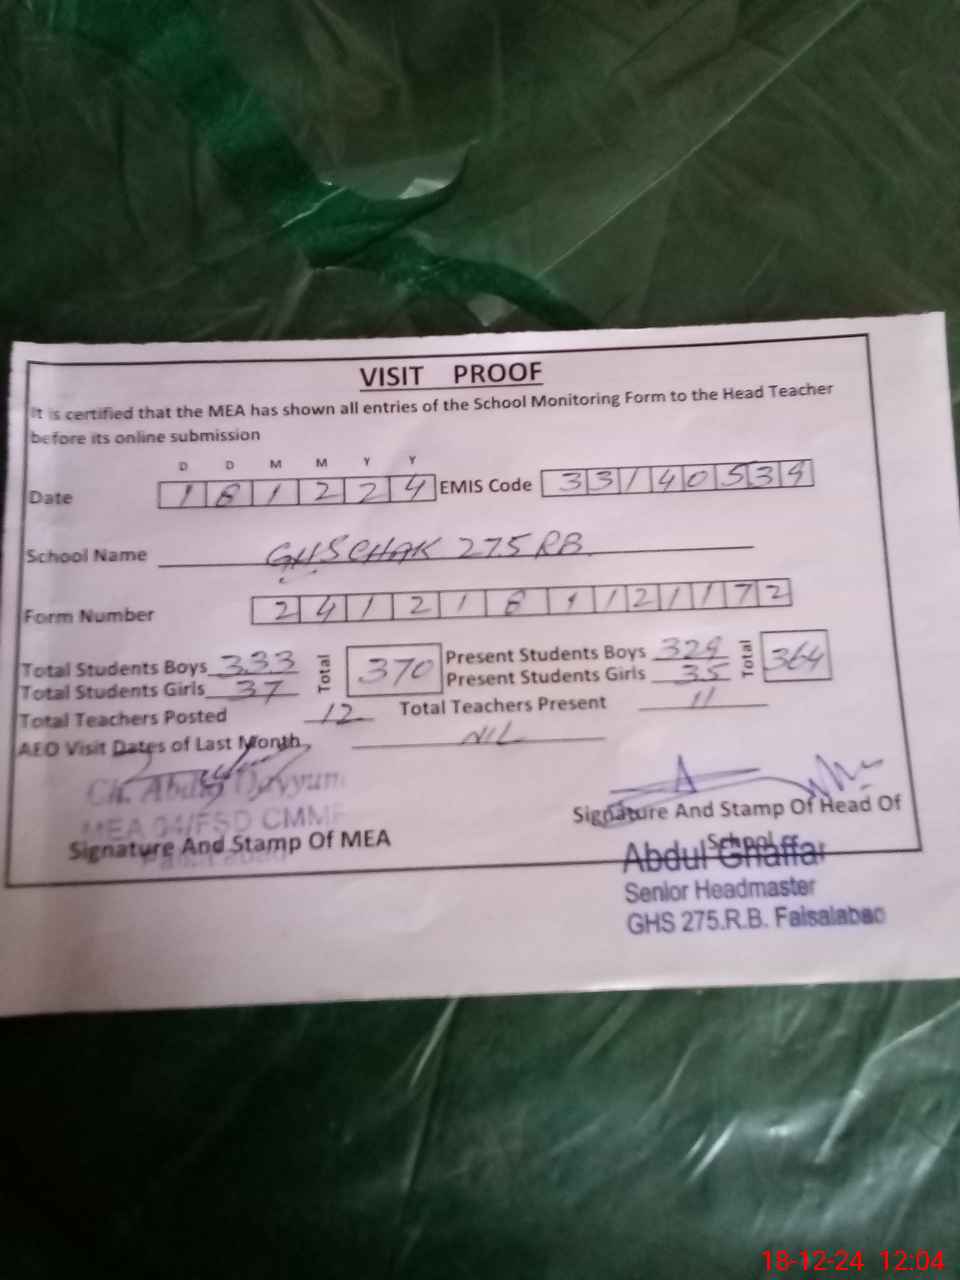 VISIT PROOF
It is certified that the MEA has shown all entries of the School Monitoring Form to the Head Teacher
before its online submission
D D M M Y Y
Date 181224 EMIS Code 33140534
School Name GHS CHAK 275 RB
Form Number 2412181121172
Total Students Boys 333 Total 370 Present Students Boys 329 Total 364
Total Students Girls 37 Present Students Girls 35
Total Teachers Posted 12 Total Teachers Present 11
AEO Visit Dates of Last Month NIL
Ch. Abdul Qayyum
MEA 04/FSD CMMF
Faisalabad
Signature And Stamp Of MEA
Signature And Stamp Of Head Of
School
Abdul Ghaffar
Senior Headmaster
GHS 275.R.B. Faisalabad
18-12-24 12:04